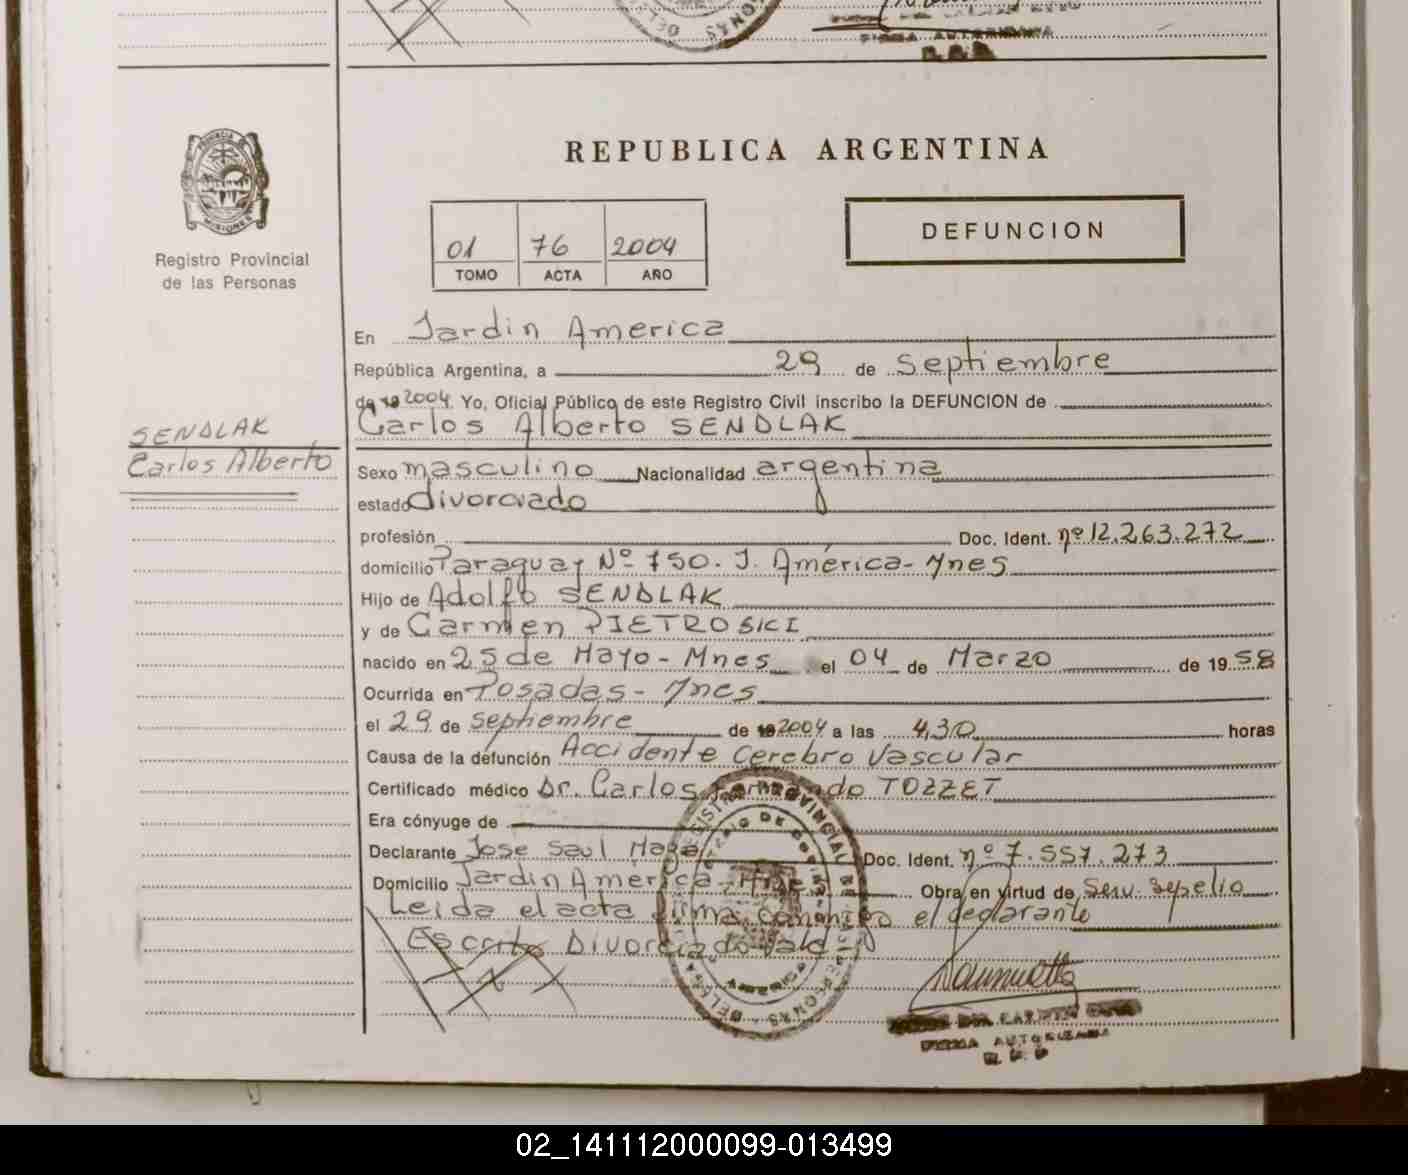 REPUBLICA ARGENTINA
01 76 2004
TOMO ACTA AÑO
DEFUNCION
Registro Provincial
de las Personas
En Jardin America
República Argentina, a 29 de septiembre
de 19 2004. Yo, Oficial Público de este Registro Civil inscribo la DEFUNCION de
Carlos Alberto SENDLAK
SENDLAK
Carlos Alberto
Sexo masculino Nacionalidad argentina
estado divorciado
profesión Doc. Ident. nº 12.263.272
domicilio Paraguay Nº 750. J. América - Mnes
Hijo de Adolfo SENDLAK
y de Carmen PIETROSICI
nacido en 25 de Mayo - Mnes el 04 de Marzo de 1958
Ocurrida en Posadas - Mnes
el 29 de septiembre de 19 2004 a las 4,30 horas
Causa de la defunción Accidente Cerebro Vascular
Certificado médico Dr. Carlos TOZZET
Era cónyuge de
Declarante Jose Saul Doc. Ident. nº 7.557.273
Domicilio Jardin América - Mnes Obra en virtud de Serv. sepelio
Leida el acta firma conmigo el declarante
Escrito Divorciado Vale
FIRMA AUTORIZADA
02_141112000099-013499